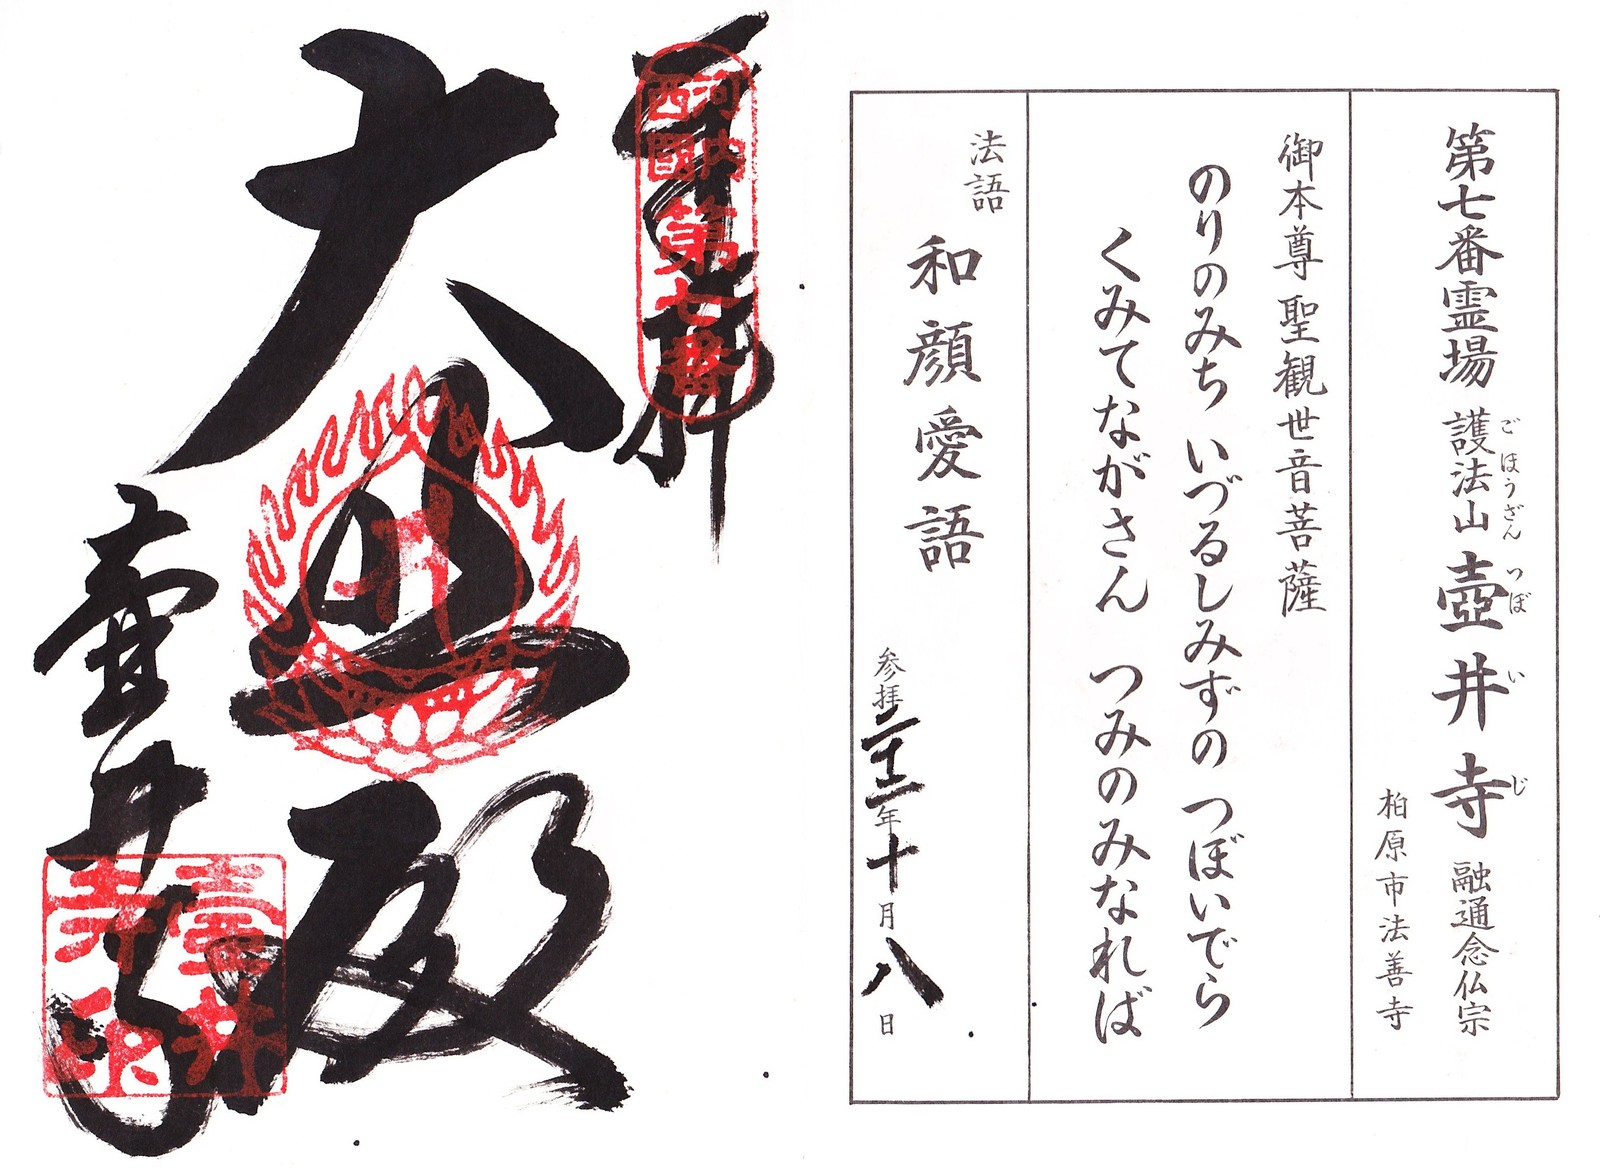 第七番霊場 護法山 壺井寺 融通念仏宗
ごほうざん つぼいじ
柏原市法善寺
御本尊 聖観世音菩薩
のりのみち いづるしみずの つぼいでら
くみてながさん つみのみなれば
法語
和顔愛語
参拝二十二年十月八日
奉拝
河内
西國
第七番
大悲殿
壺井寺
壺井
寺印